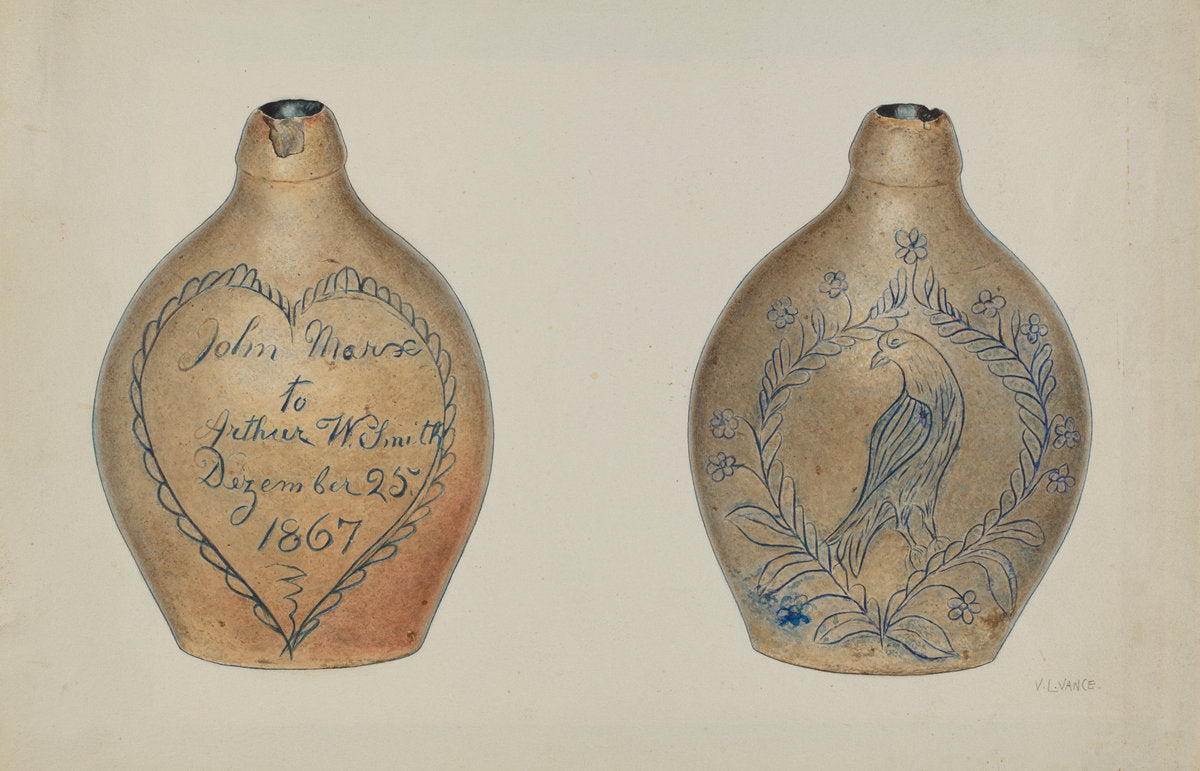 John Marx
to
Arthur W. Smith
Dezember 25.
1867
V.L.VANCE.